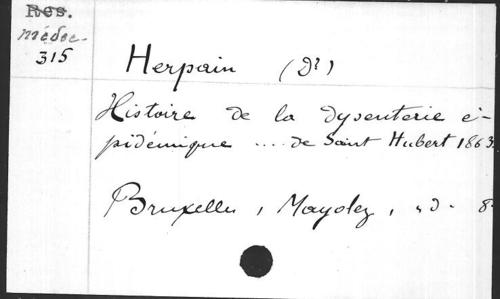 Res.
médec.
315
Herpain (Dr)
Histoire de la dysenterie é-
pidémique .... de Saint Hubert 1863.
Bruxelles, Mayolez, sd. 8°